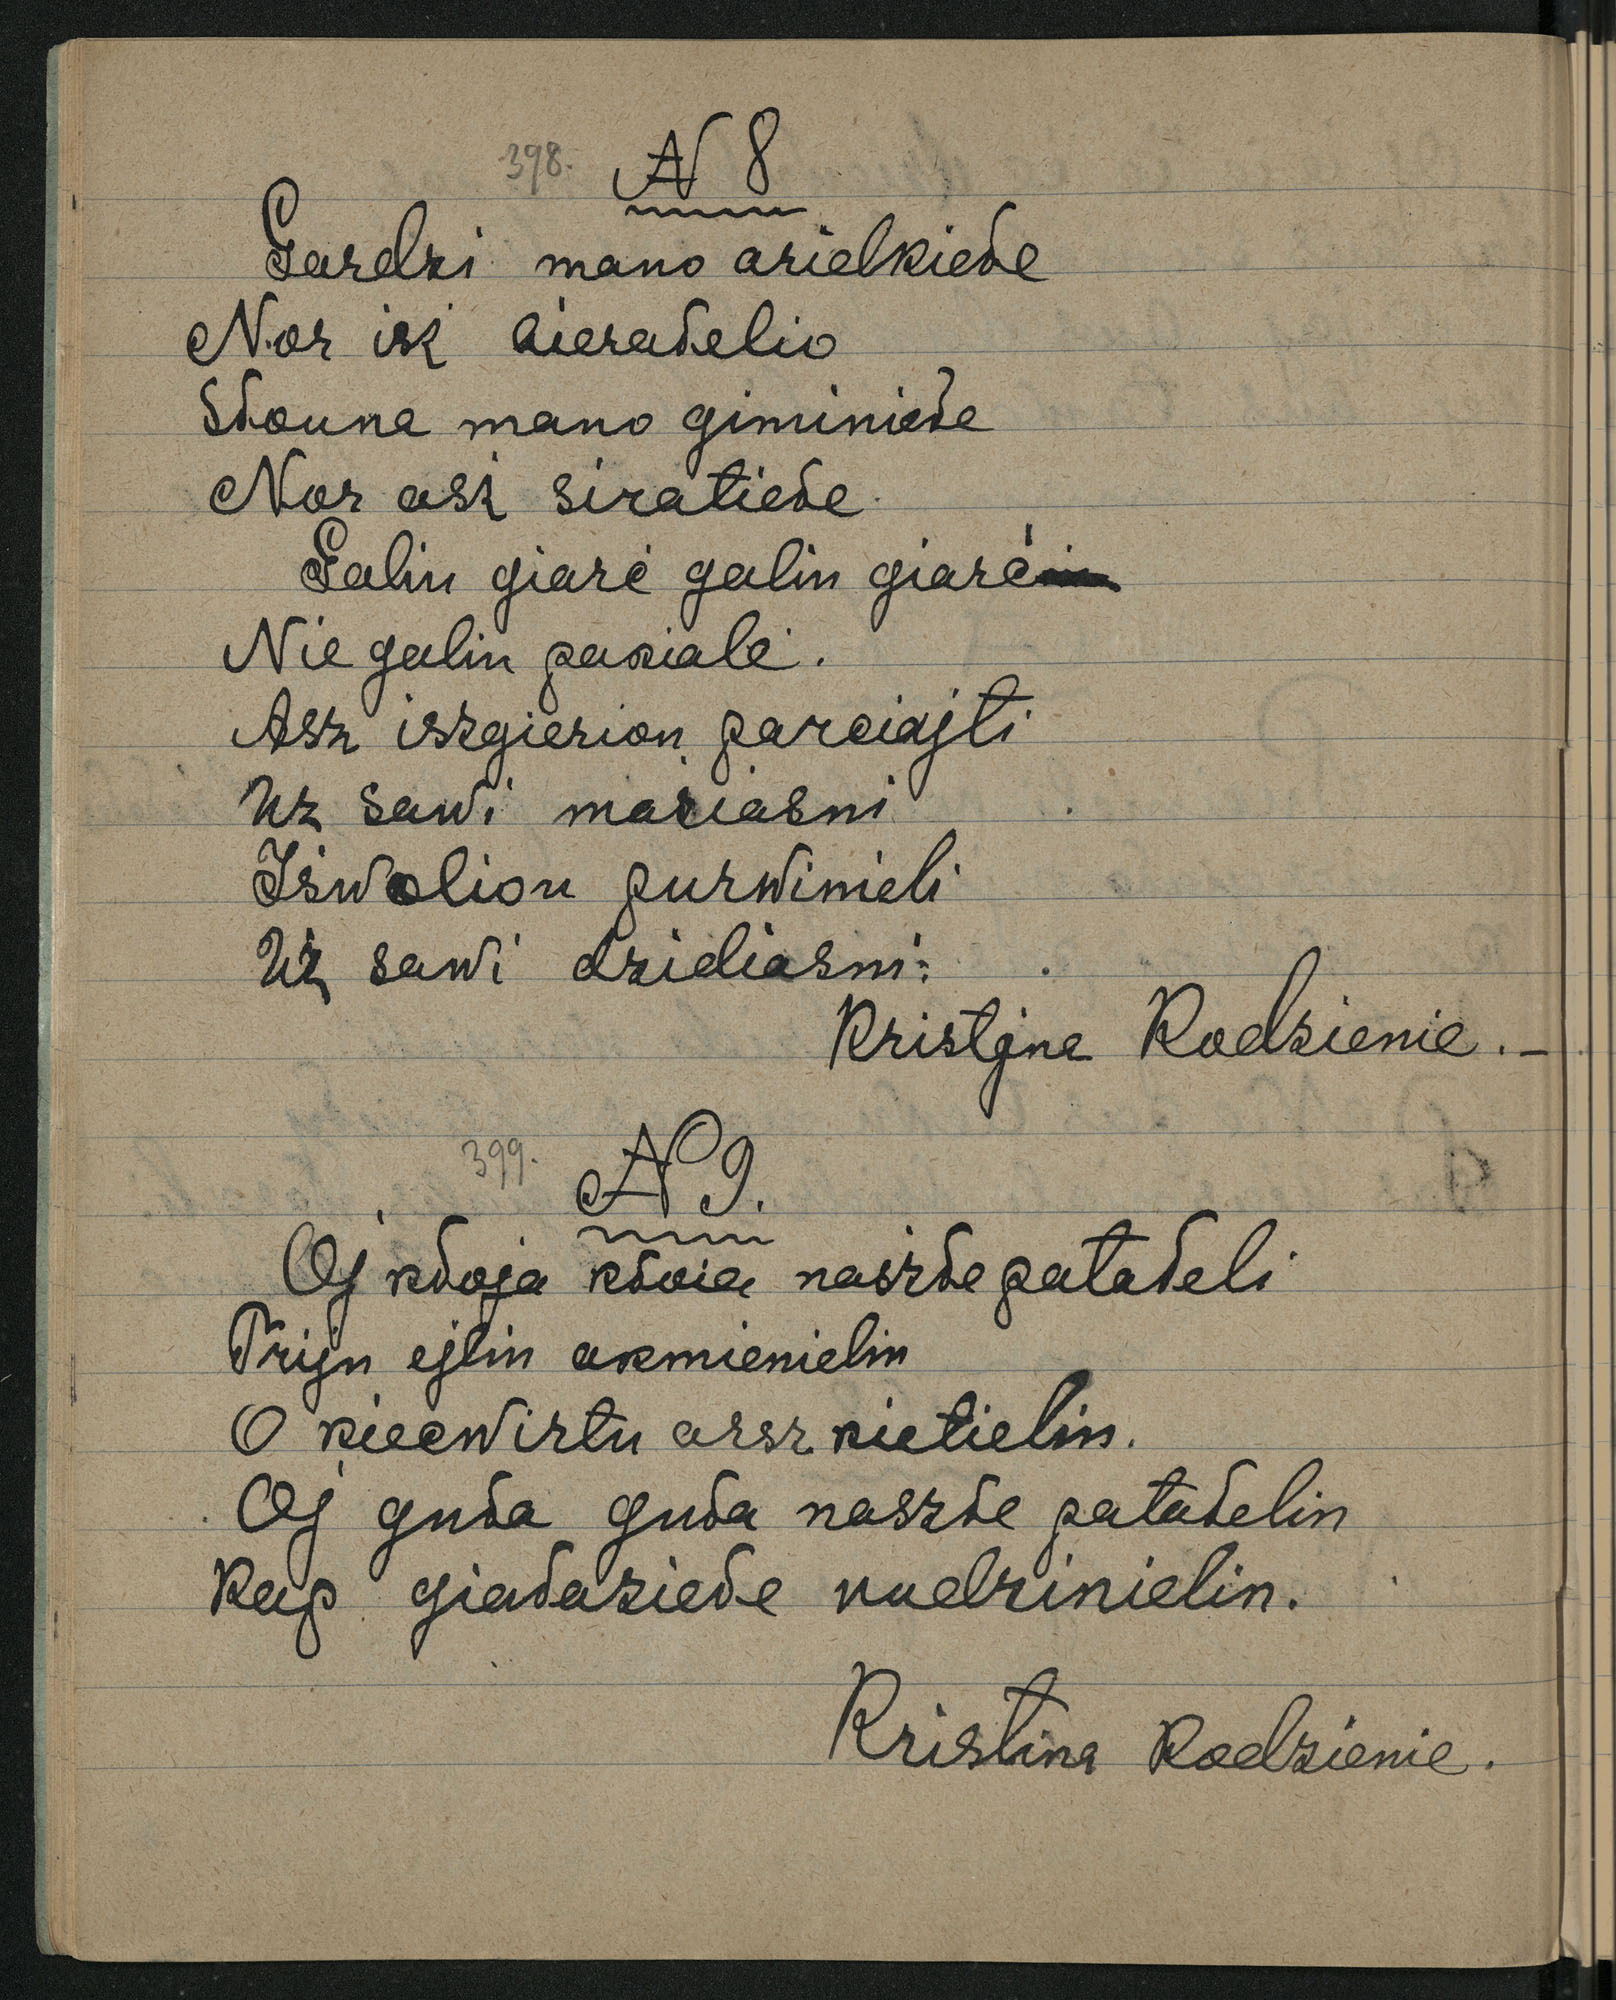 398. N 8
Gardzi mano arielkiełe
Nor isź cierałelio
Słouna mano giminiełe
Nor asź siratiełe.
Galin giarć galin giarć
Nie galin pakialć.
Asz iszgierion parciajti
Uz sawi mażiasni
Iśwolion purwinieli
Uź sawi dzidiasni.
Kristjna Kodzienie.-
399. N 9.
Oj kłoja kłoia naszłe patałeli
Trijn ejlin akmienielin
O kiecwirtu arsz kietielin.
Oj guła guła naszłe patałelin
Kap giałaziełe rudzinielin.
Kristina Kodzienie.